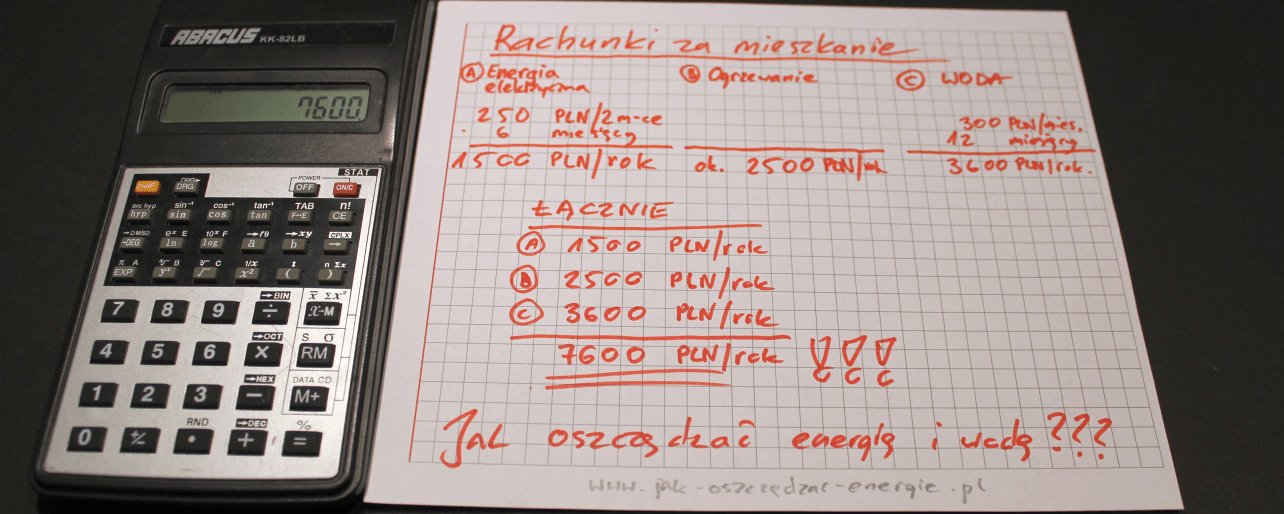 ABACUS KK-82LB
7600
STAT
DRG▸
POWER
2ndF DRG OFF ON/C
arc hyp sin⁻¹ cos⁻¹ tan⁻¹ TAB n!
hyp sin cos tan F↔E CE
→DMSD eˣ E 10ˣ F →rθ →xy CPLX
→DEG ln log a b →
π A ∛ B ∛ C 1/x n Σx
EXP yˣ √ x² ( )
→BIN x̄ Σx²
7 8 9 ÷ x-M
→OCT S σ
4 5 6 × RM
→HEX DATA CD
1 2 3 − M+
RND →DEC %
0 +/- • + =
Rachunki za mieszkanie
A Energia elektryczna
250 PLN/2 m-ce
. 6 miesięcy
1500 PLN/rok
B Ogrzewanie
ok. 2500 PLN/rok
C WODA
300 PLN/mies.
12 miesięcy
3600 PLN/rok.
ŁĄCZNIE
A 1500 PLN/rok
B 2500 PLN/rok
C 3600 PLN/rok
7600 PLN/rok !!!
Jak oszczędzać energię i wodę???
www.jak-oszczedzac-energie.pl